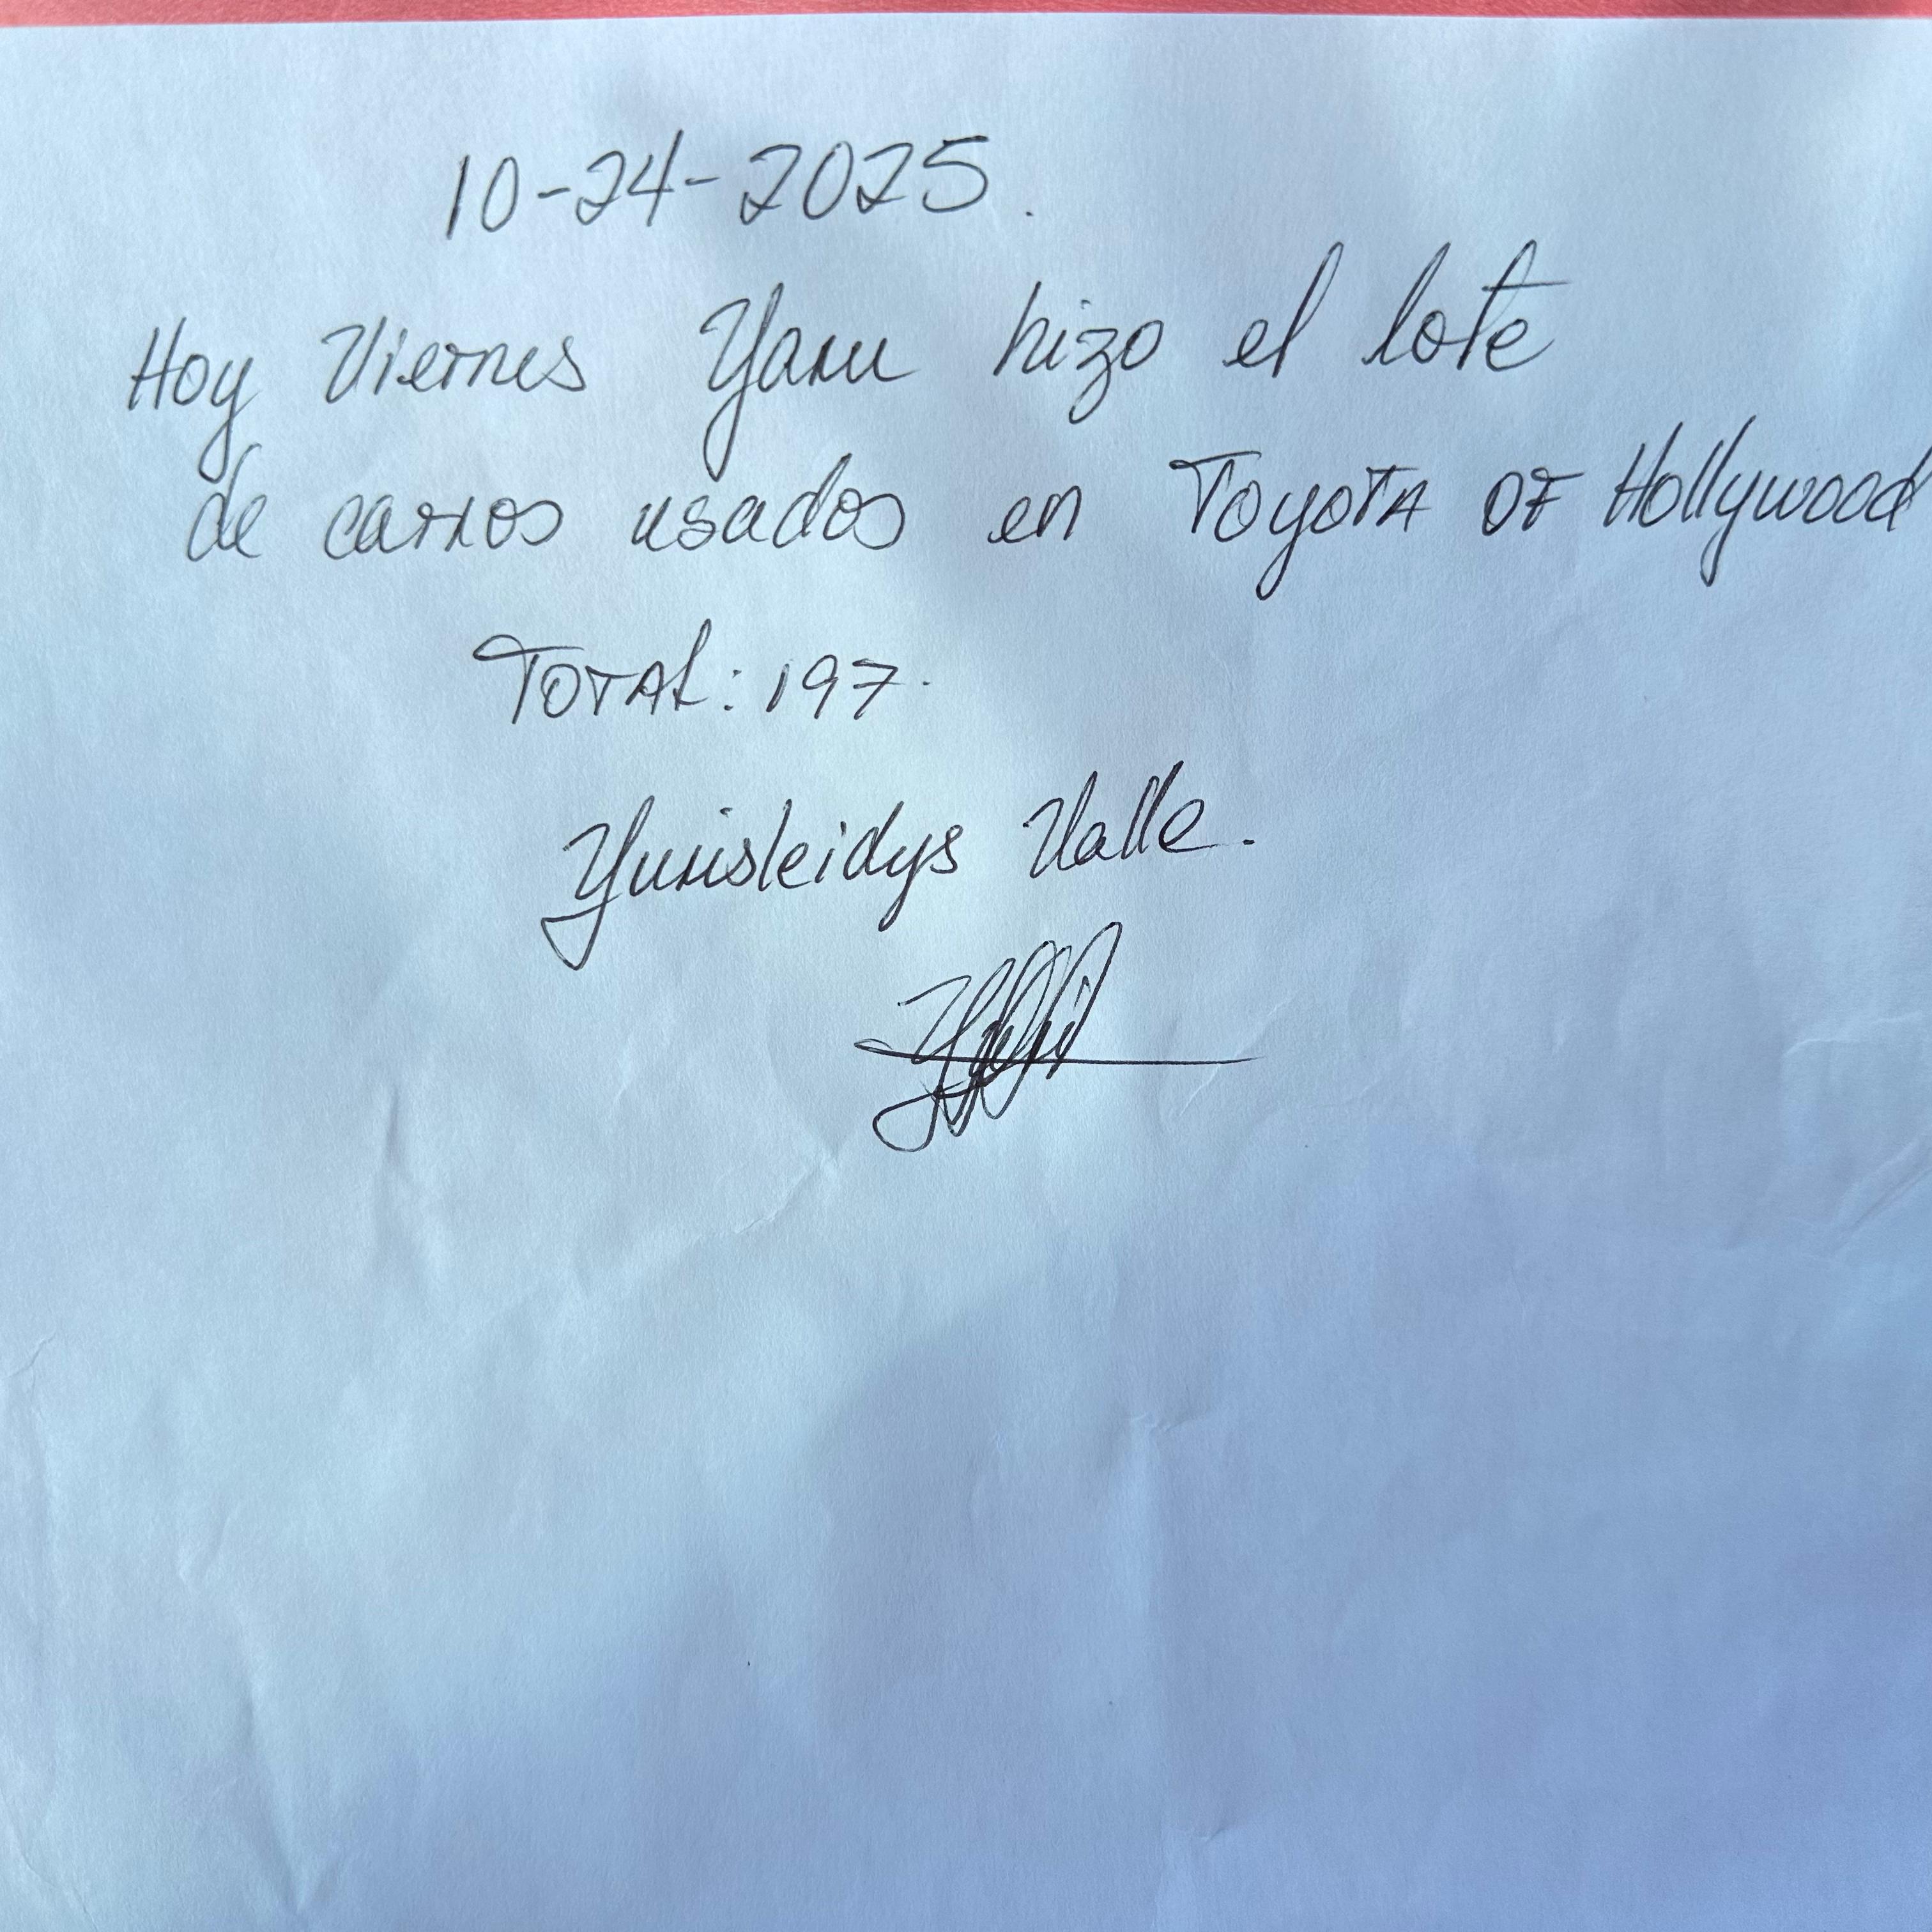 10-24-2025.
Hoy Viernes Yaru hizo el lote
de carros usados en Toyota OF Hollywood
TOTAL: 197.
Yurisleidys Valle.